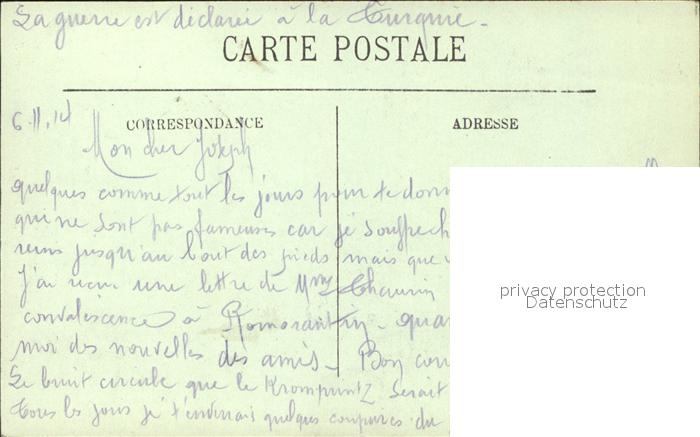 La guerre est déclarée à la Turquie.
CARTE POSTALE
CORRESPONDANCE
ADRESSE
6.11.14
Mon cher Joseph
quelques comme tout les jours pour te donn
qui ne sont pas fameuses car je souffre
reins jusqu'au bout des pieds mais que
J'ai reçu une lettre de Mme
convalescence à Romorantin - qua
moi des nouvelles des amis - Bon cou
Le bruit circule que le Kromprintz serait
Tous les jours je t'enverrai quelques coupures du
privacy protection
Datenschutz